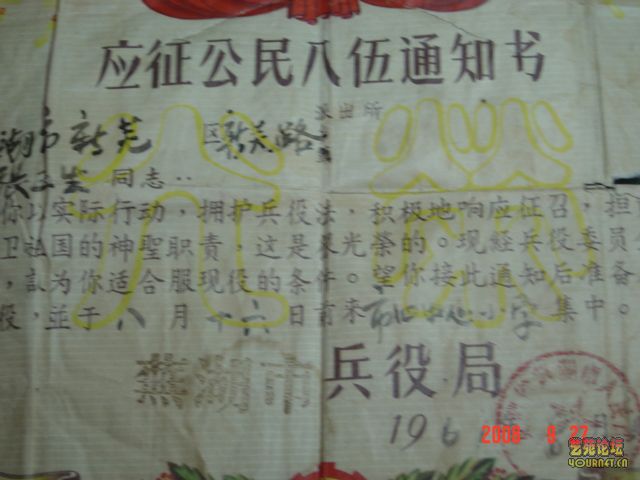 应征公民入伍通知书
湖市新芜 区新芜路派出所
同志：
你以实际行动，拥护兵役法，积极地响应征召，担
卫祖国的神聖职责，这是很光荣的。现經兵役委员
，認为你适合服现役的条件。望你接此通知后准备
役，並于八月十六日前来 小学集中。
蕪湖市兵役局
196
光荣
2008 8 27
艺苑论坛
YOURNET.CN